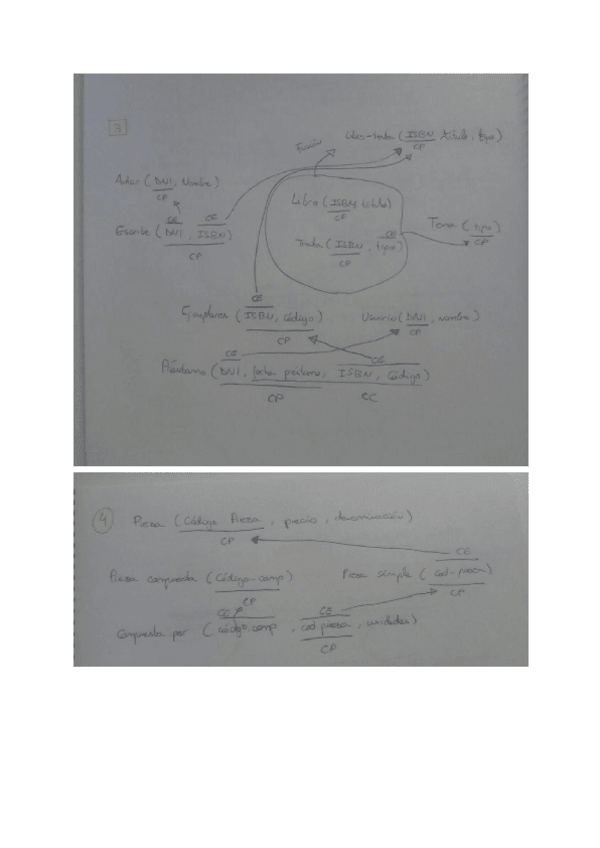 3
Fusión
Libro-trata (ISBN, título, tipo)
CP
Autor (DNI, Nombre)
CP
CE CE
Escribe (DNI, ISBN)
CP
Libro (ISBN, título)
CP
CE
Trata (ISBN, tipo)
CP
Tema (tipo)
CP
CE
Ejemplares (ISBN, código)
CP
Usuario (DNI, nombre)
CP
CE CE
Préstamo (DNI, fecha préstamo, ISBN, código)
CP CC
4
Pieza (Código Pieza, precio, denominación)
CP
CE
Pieza compuesta (Código-comp) Pieza simple (cod-pieza)
CP CP
CE
Compuesta por (código comp, cod pieza, unidades)
CP